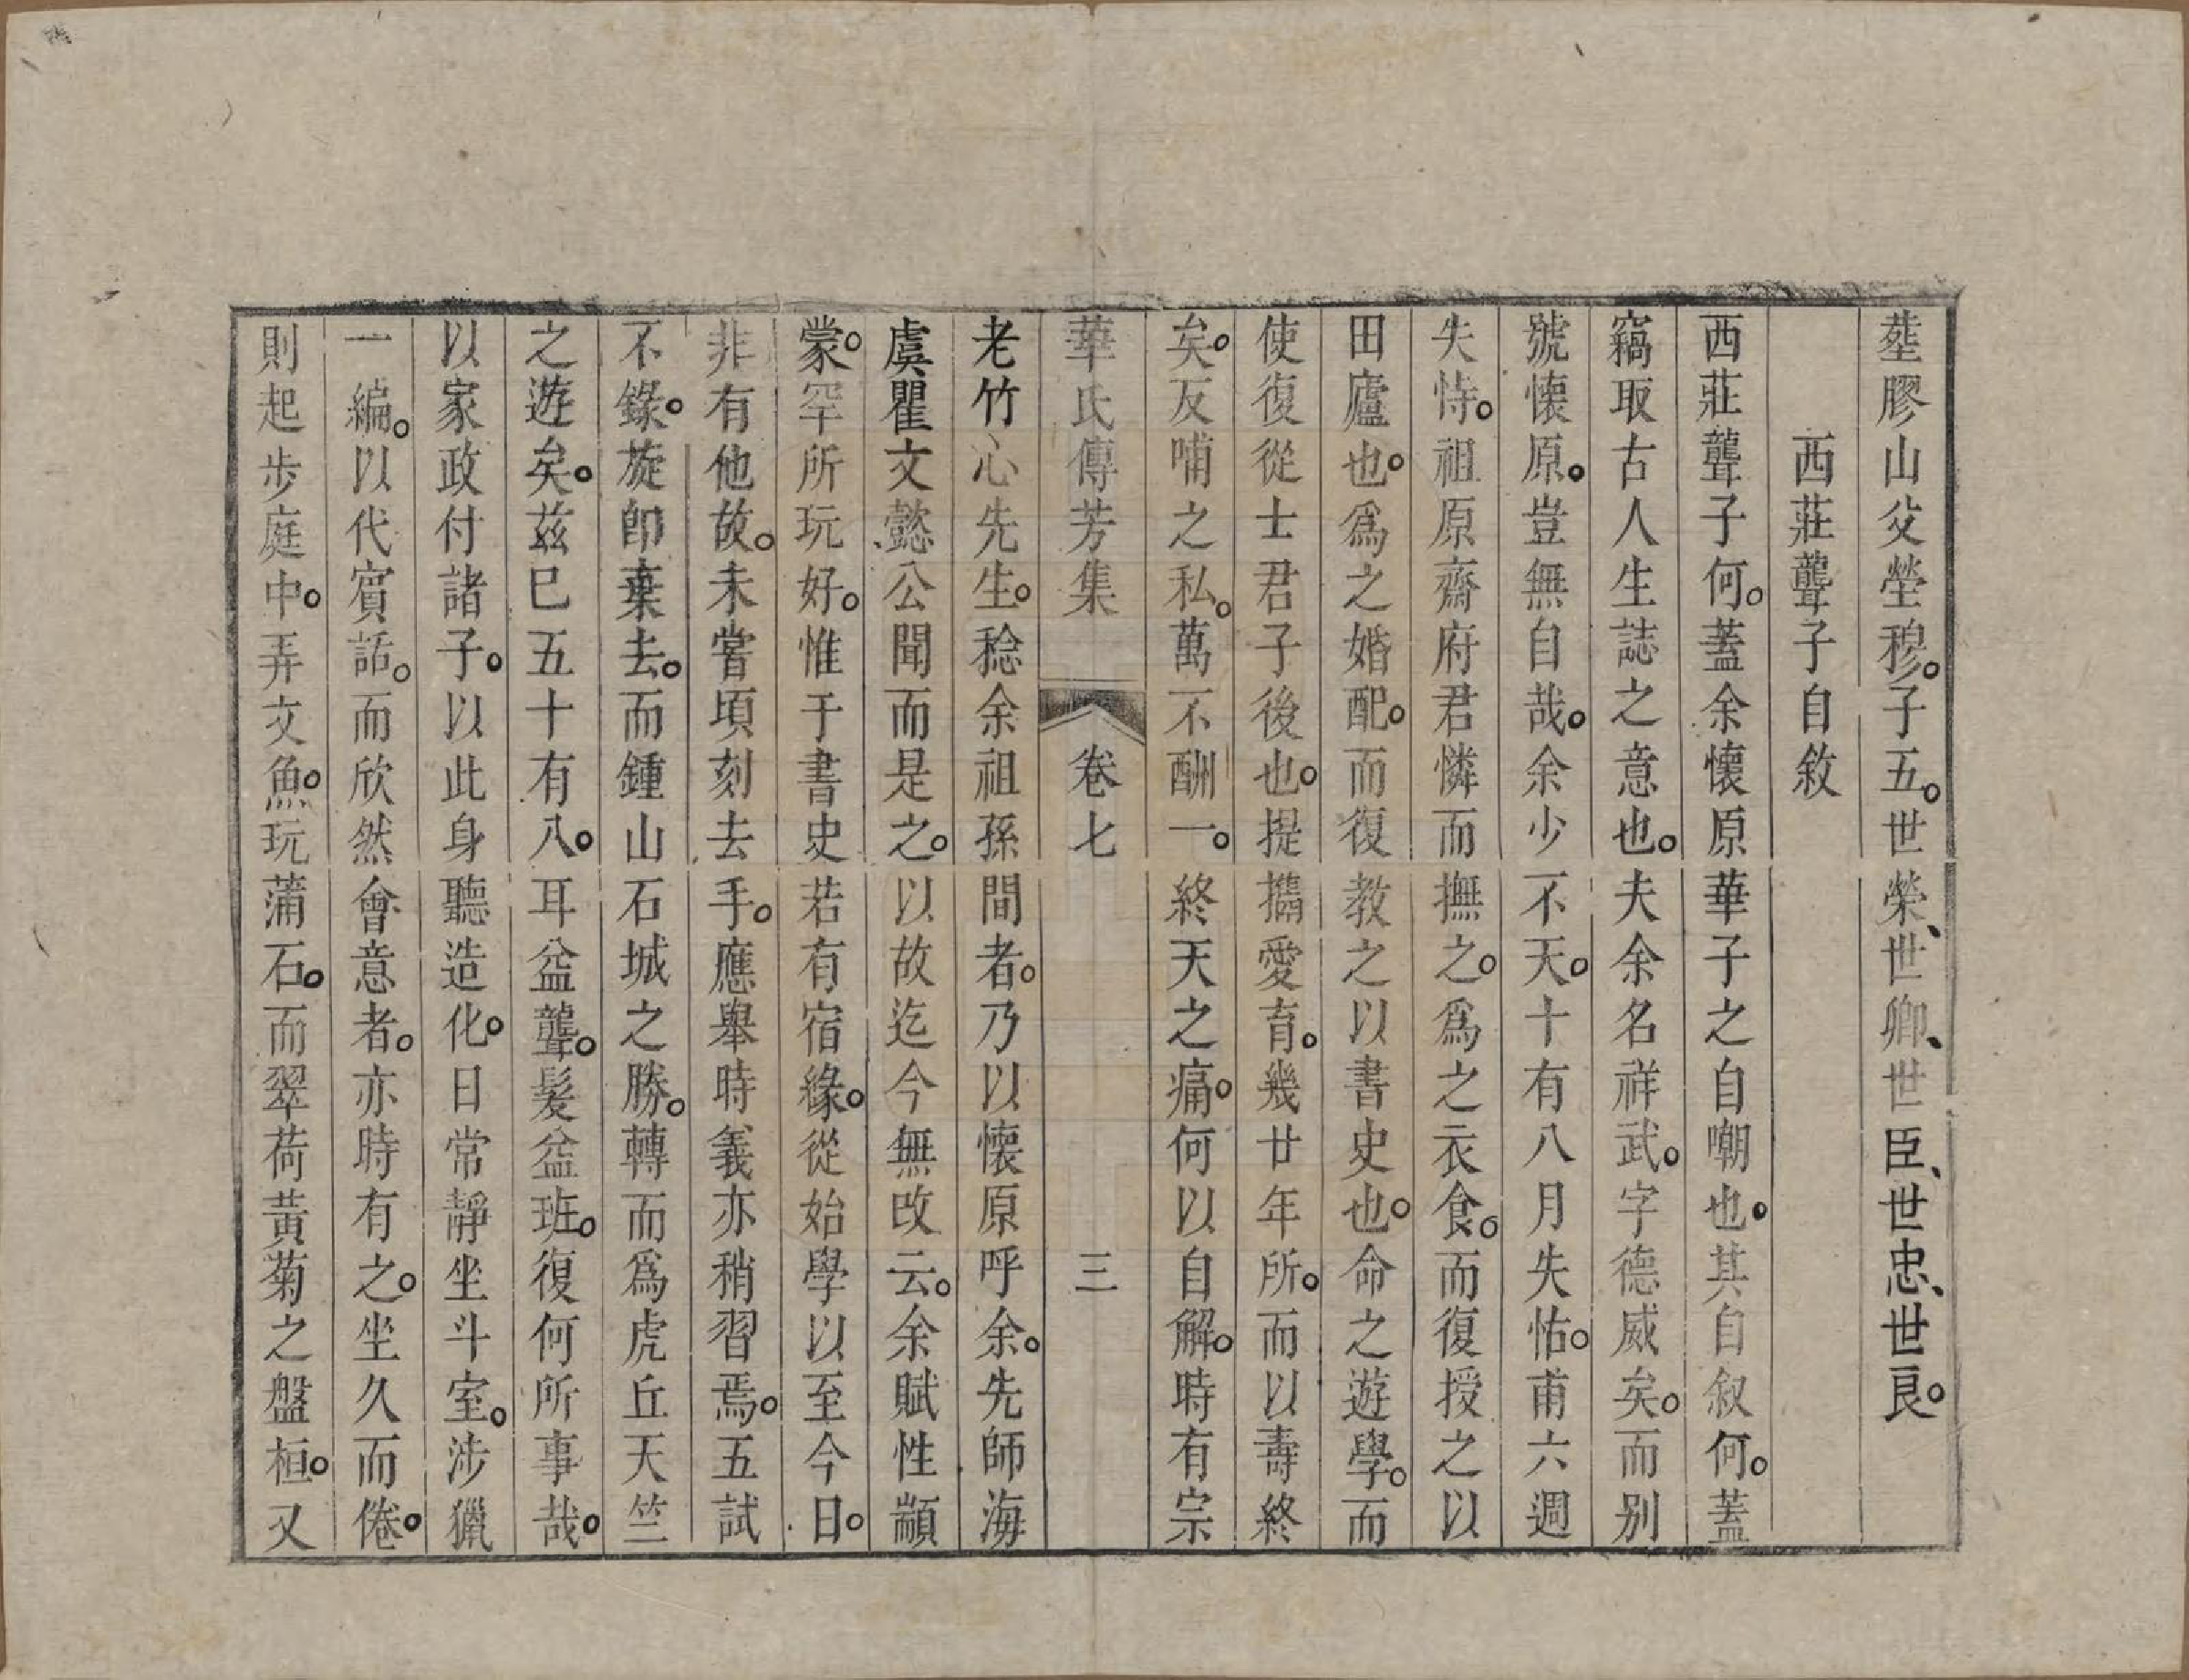 塟膠山父塋穆。子五。世榮、世卿、世臣、世忠、世良。
西莊聾子自敘
西莊聾子何。蓋余懷原華子之自嘲也。其自叙何。蓋
竊取古人生誌之意也。夫余名祥武。字德威矣。而别
號懷原。豈無自哉。余少不天。十有八月失怙。甫六週
失恃。祖原齋府君憐而撫之。爲之衣食。而復授之以
田廬也。爲之婚配。而復教之以書史也。命之遊學。而
使復從士君子後也。提攜愛育。幾廿年所。而以壽終
矣。反哺之私。萬不酬一。終天之痛。何以自解。時有宗
華氏傳芳集 卷七 三
老竹心先生。稔余祖孫間者。乃以懷原呼余。先師海
虞瞿文懿公聞而是之。以故迄今無改云。余賦性顓
蒙。罕所玩好。惟于書史若有宿緣。從始學以至今日。
非有他故。未嘗頃刻去手。應舉時義亦稍習焉。五試
不錄。旋卽棄去。而鍾山石城之勝。轉而爲虎丘天竺
之遊矣。茲巳五十有八。耳益聾。髮益班。復何所事哉。
以家政付諸子。以此身聽造化。日常靜坐斗室。涉獵
一編。以代賓話。而欣然會意者。亦時有之。坐久而倦。
則起步庭中。弄文魚。玩蒲石。而翠荷黃菊之盤桓。又